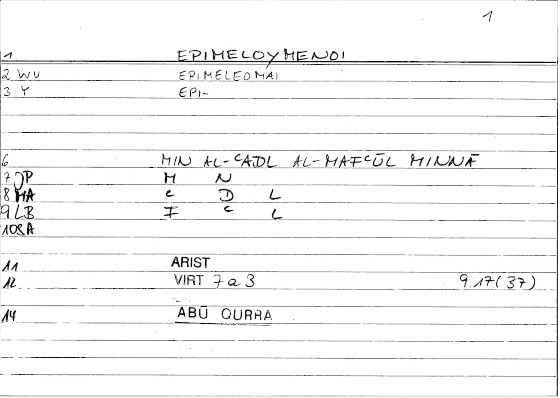 1
1 EPIMELOYMENOI
2 WU EPIMELEOMAI
3 Y EPI-
6 MIN AL-ᶜADL AL-MAFᶜŪL MINNĀ
7 JP M N
8 MA ᶜ D L
9 LB F ᶜ L
10 SA
11 ARIST
12 VIRT 7 a 3 9.17(37)
14 ABŪ QURRA